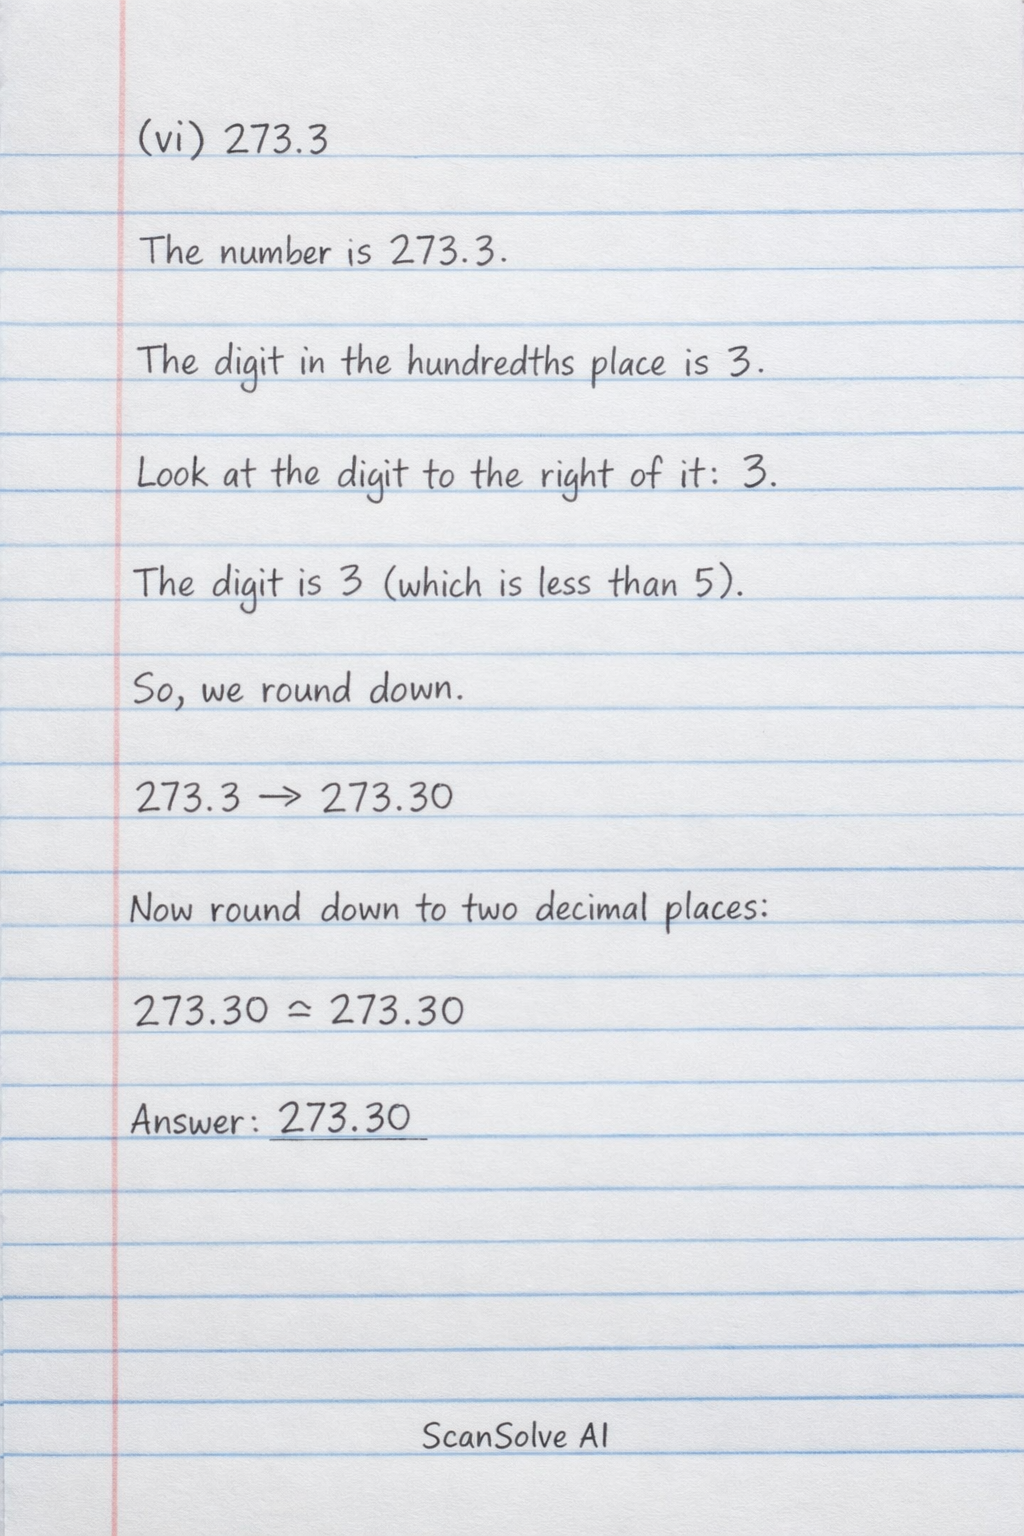 (vi) 273.3
The number is 273.3.
The digit in the hundredths place is 3.
Look at the digit to the right of it: 3.
The digit is 3 (which is less than 5).
So, we round down.
273.3 → 273.30
Now round down to two decimal places:
273.30 ≏ 273.30
Answer: 273.30
ScanSolve AI